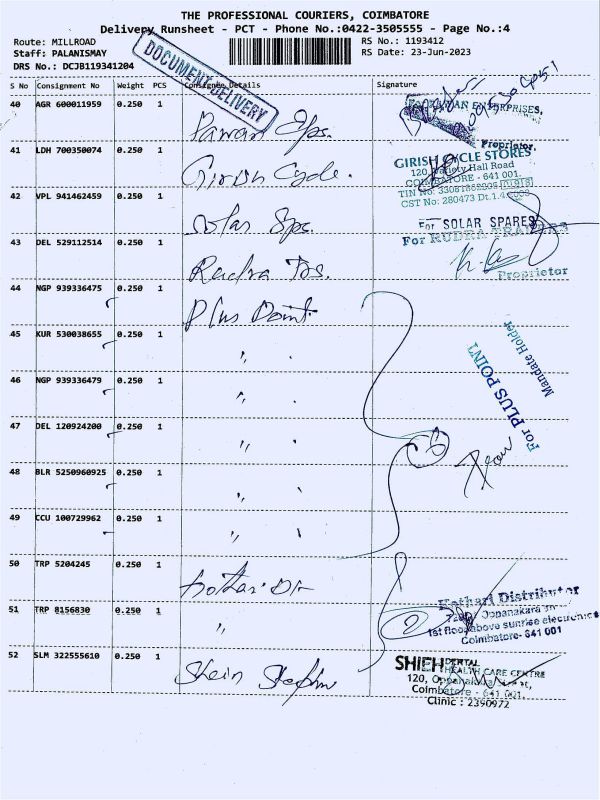 THE PROFESSIONAL COURIERS, COIMBATORE
Delivery Runsheet - PCT - Phone No.:0422-3505555 - Page No.:4
Route: MILLROAD
Staff: PALANISMAY
DRS No.: DCJB119341204
RS No.: 1193412
RS Date: 23-Jun-2023
DOCUMENT DELIVERY
S No Consignment No Weight PCS Consignee Details Signature
40 AGR 600011959 0.250 1
ENTERPRISES,
Proprietor.
41 LDH 700350074 0.250 1 Girish Cycle.
GIRISH CYCLE STORES
120, Variety Hall Road
COIMBATORE - 641 001.
42 VPL 941462459 0.250 1 Solar Sps.
For SOLAR SPARES
43 DEL 529112514 0.250 1 Rudra Tds.
For RUDRA TRADERS
Proprietor
44 NGP 939336475 0.250 1 Plus Point
45 KUR 530038655 0.250 1 "
46 NGP 939336479 0.250 1 "
For PLUS POINT
Mandate Holder
47 DEL 120924200 0.250 1 "
48 BLR 5250960925 0.250 1 "
49 CCU 100729962 0.250 1 "
50 TRP 5204245 0.250 1 Kothari Dr
Kothari Distributor
Oppanakara
1st floor above sunrise electronics
Coimbatore- 641 001
51 TRP 8156830 0.250 1 "
2
52 SLM 322555610 0.250 1
DENTAL
HEALTH CARE CENTRE
120, Oppanakara Street,
Coimbatore - 641 001.
Clinic : 2390972